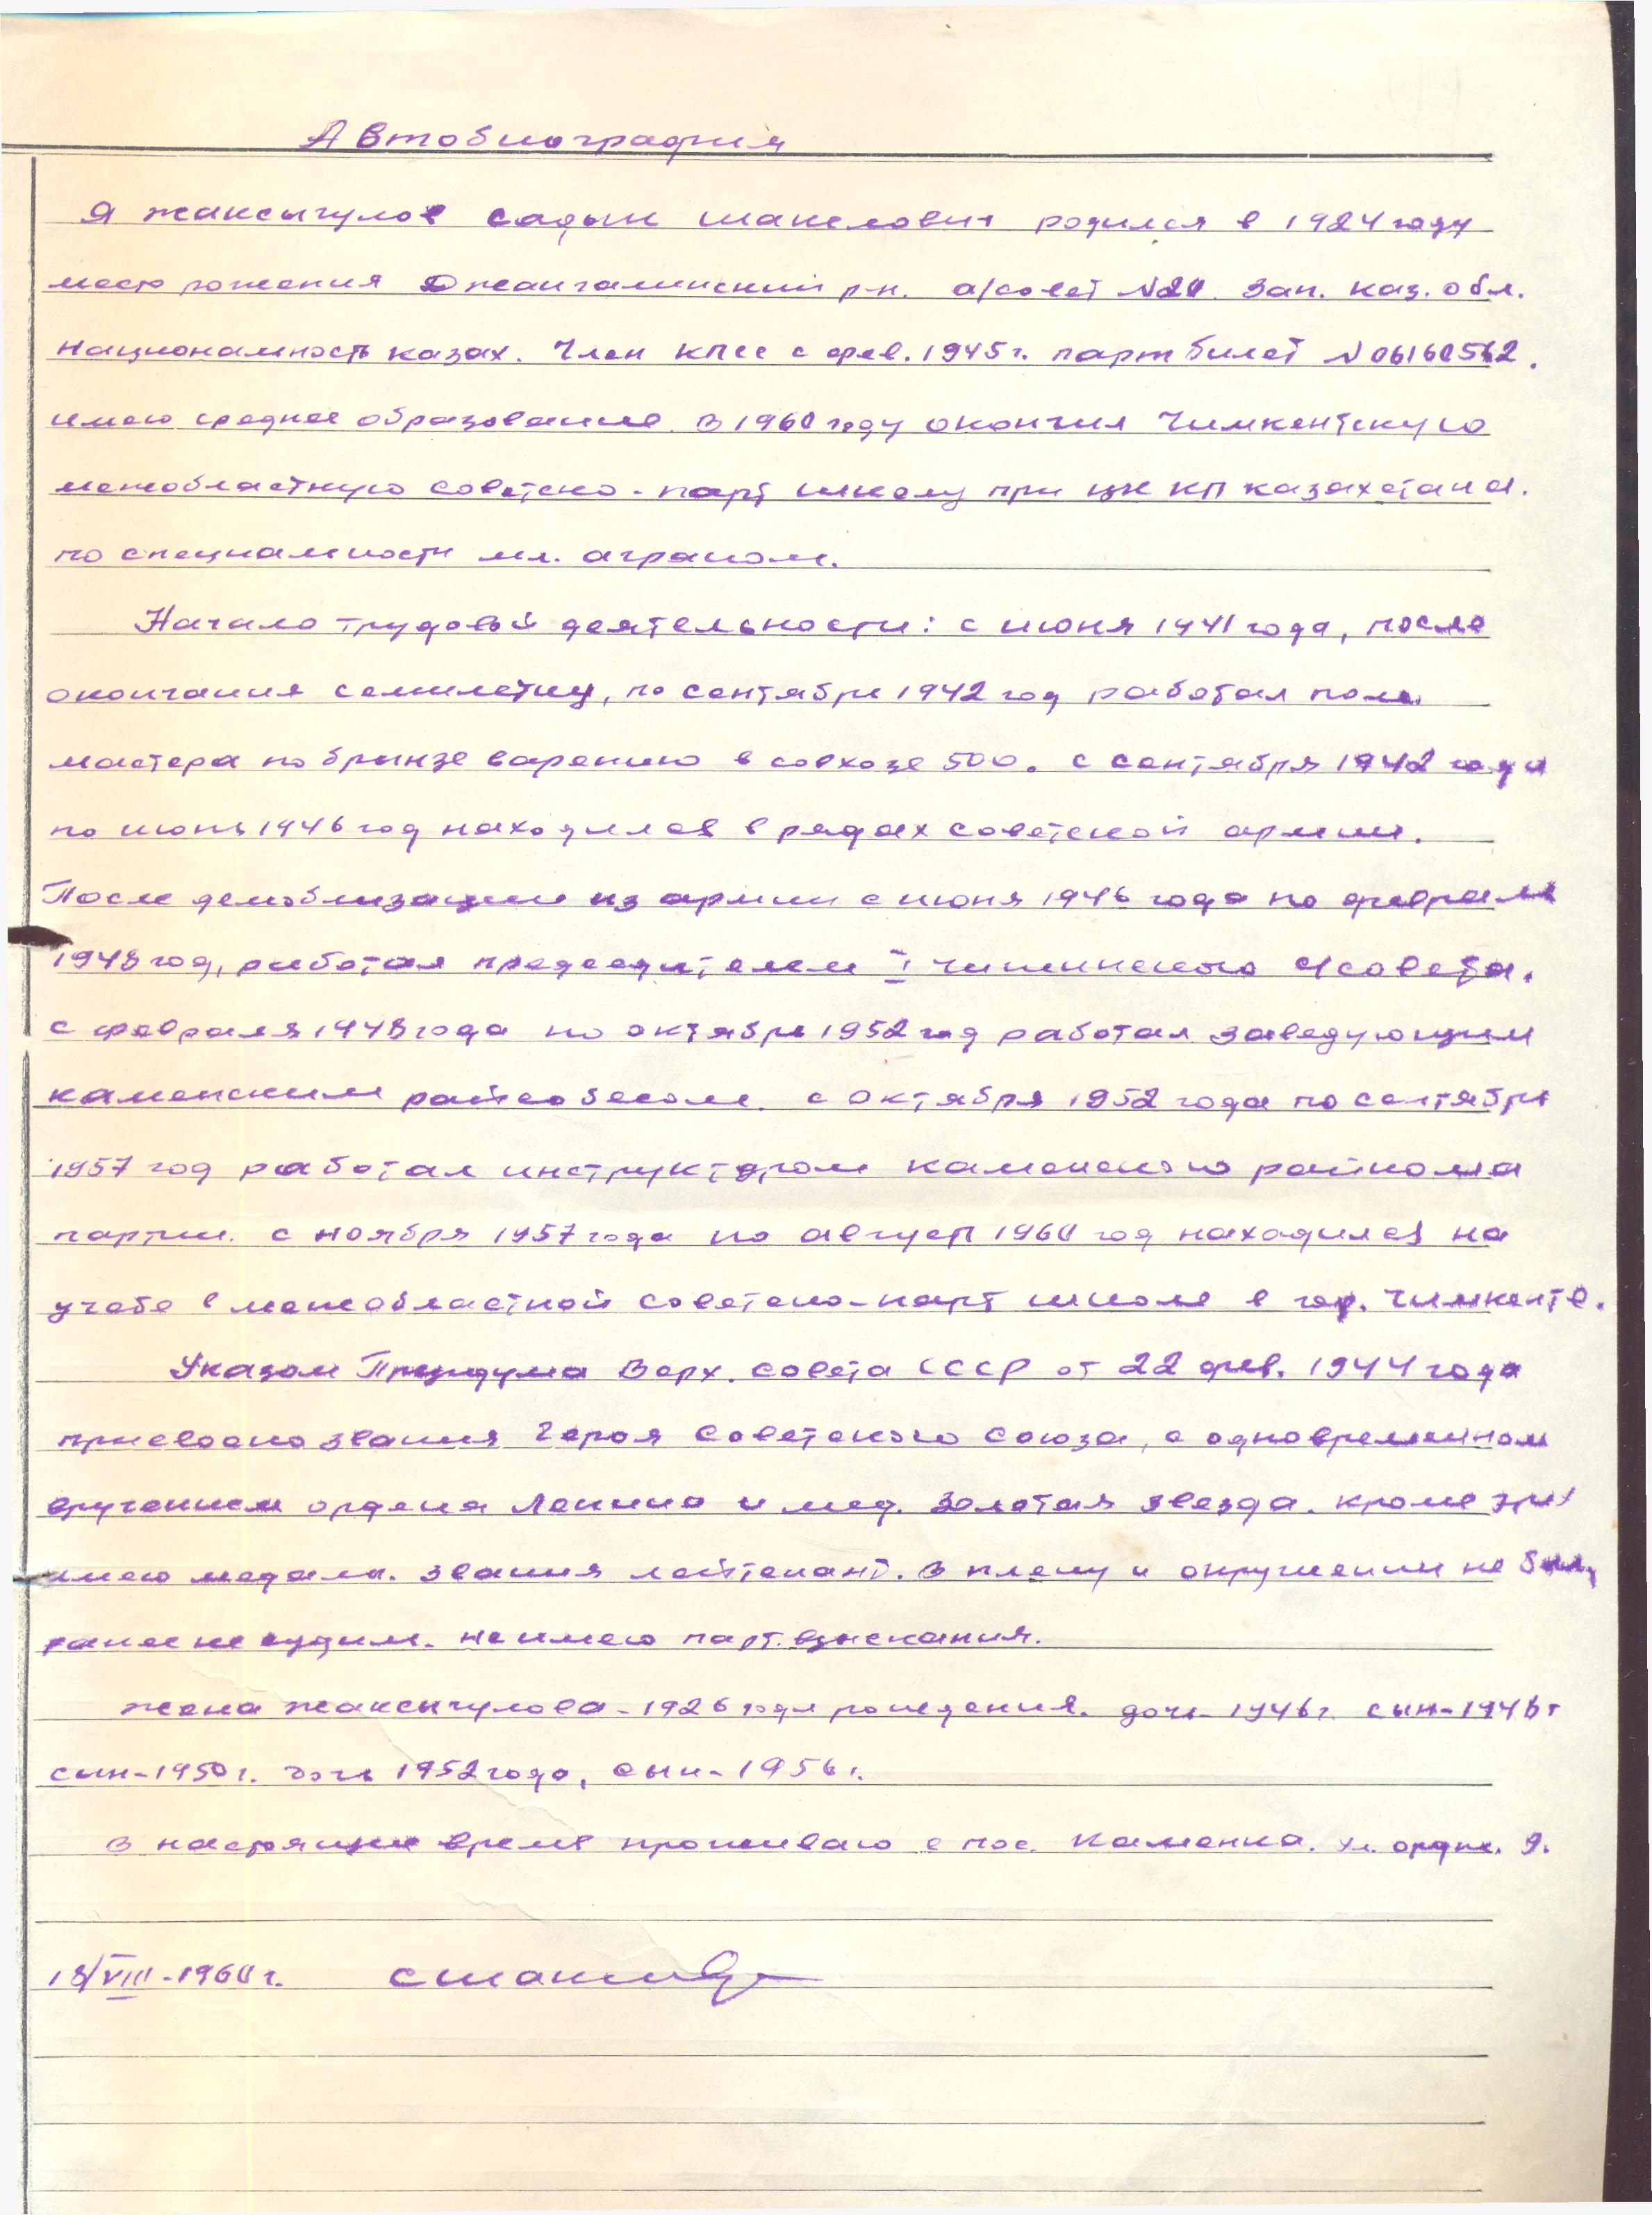 Автобиография
Я Жаксыгулов Садык Шакелович родился в 1924 году
место рожения Джангалинский р-н. а/совет №20. Зап. Каз. обл.
Национальность казах. Член КПСС с фев. 1945 г. парт билет №06160562.
имею среднее образование. В 1960 году окончил Чимкентскую
межобластную советско-парт школу при ЦК КП Казахстана.
по специальности мл. аграном.
Начало трудовой деятельности: с июня 1941 года, после
окончания семилетку, по сентябрь 1942 год работал пом.
мастера по брынзе варению в совхозе 500. с сентября 1942 года
по июнь 1946 год находился в рядах советской армии.
После демоблизации из армии с июня 1946 года по февраль
1948 год, работал председателем I Чижинского с/совета.
с февраля 1948 года по октябрь 1952 год работал заведующим
каменским райсобесом. с октября 1952 года по сентябрь
1957 год работал инструктором каменского райкома
партии. с ноября 1957 года по август 1960 год находился на
учебе в межобластной советско-парт школе в гор. Чимкенте.
Указом Президума Верх. Совета СССР от 22 фев. 1944 года
присвоено звания Героя Советского Союза, с одновременном
вручением ордена Ленина и мед. Золотая звезда. кроме этих
имею медали. звания лейтенант. в плену и окружении не был,
ранее не судим. не имею парт. взыскания.
жена Жаксыгулова - 1926 года рождения. дочь - 1946 г. сын - 1948 г
сын - 1950 г. дочь 1952 года, сын - 1956 г.
в настоящие время проживаю в пос. Каменка. ул. ордж. 9.
18/VIII-1960 г.